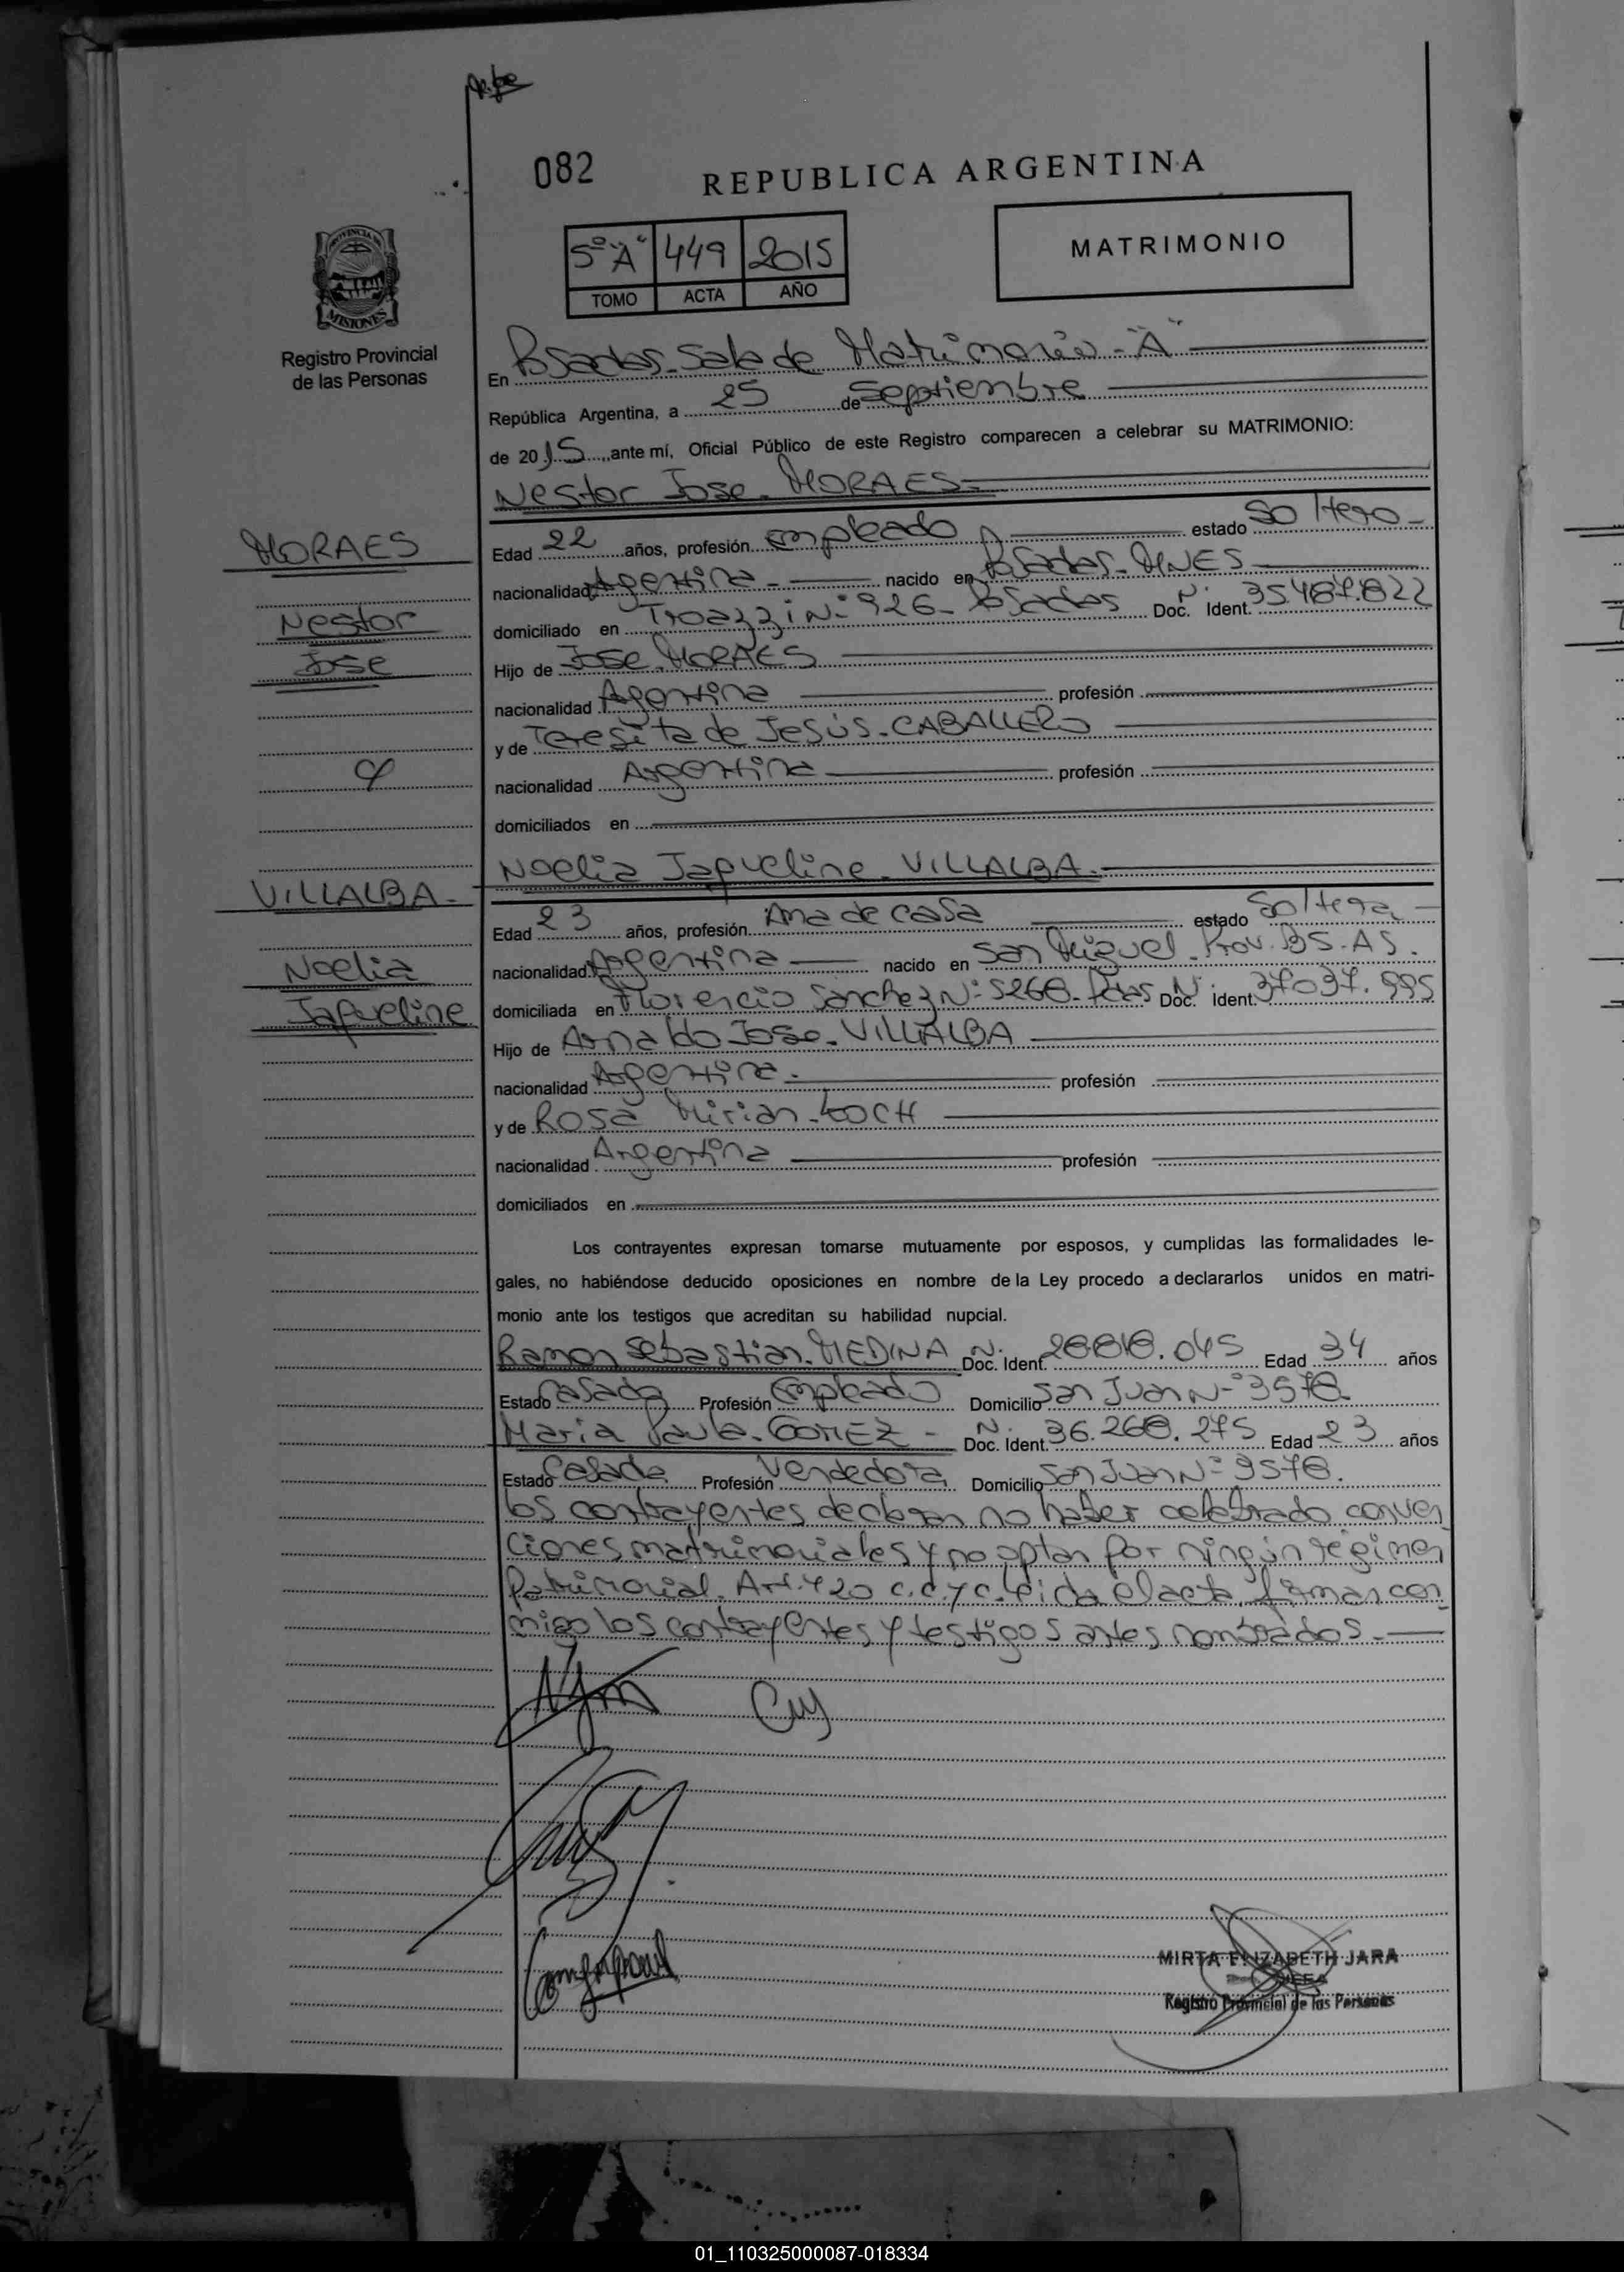 082
REPUBLICA ARGENTINA
5º "A" 449 2015
TOMO ACTA AÑO
MATRIMONIO
PROVINCIA DE
MISIONES
Registro Provincial
de las Personas
En Posadas - Sala de Matrimonio - "A"
República Argentina, a 25 de Septiembre
de 2015, ante mí, Oficial Público de este Registro comparecen a celebrar su MATRIMONIO:
Nestor Jose - MORAES -
MORAES
Nestor
Jose
Edad 22 años, profesión empleado estado Soltero -
nacionalidad Argentina - nacido en Posadas - MNES
domiciliado en N° 926 - Posadas Doc. N. Ident. 35487.822
Hijo de Jose - MORAES
nacionalidad Argentina profesión
y de Teresita de Jesús - CABALLERO
nacionalidad Argentina profesión
domiciliados en
Noelia Jaqueline - VILLALBA -
VILLALBA -
Noelia
Jaqueline
Edad 23 años, profesión Ama de casa estado Soltera -
nacionalidad Argentina nacido en San Miguel - Prov. BS. AS.
domiciliada en Florencio Sanchez N° 5268 - Pdas Doc. N. Ident. 37037.995
Hijo de Arnaldo Jose - VILLALBA
nacionalidad Argentina - profesión
y de Rosa Mirian - KOCH
nacionalidad Argentina profesión
domiciliados en
Los contrayentes expresan tomarse mutuamente por esposos, y cumplidas las formalidades le-
gales, no habiéndose deducido oposiciones en nombre de la Ley procedo a declararlos unidos en matri-
monio ante los testigos que acreditan su habilidad nupcial.
Ramon Sebastian - MEDINA Doc. N. Ident. 28.818.045 Edad 34 años
Estado Casado Profesión Empleado Domicilio San Juan N° 3578
Maria Paula - GOMEZ - Doc. N. Ident. 36.268.275 Edad 23 años
Estado Casada Profesión Vendedora Domicilio San Juan N° 3578.
los contrayentes declaran no haber celebrado conven
ciones matrimoniales y no optan por ningún régimen
Patrimonial. Art. 420 c.c. y c. leida el acta, firman con
migo los contrayentes y testigos antes nombrados -
MIRTA ELIZABETH JARA
JEFA
Registro Provincial de las Personas
01_110325000087-018334